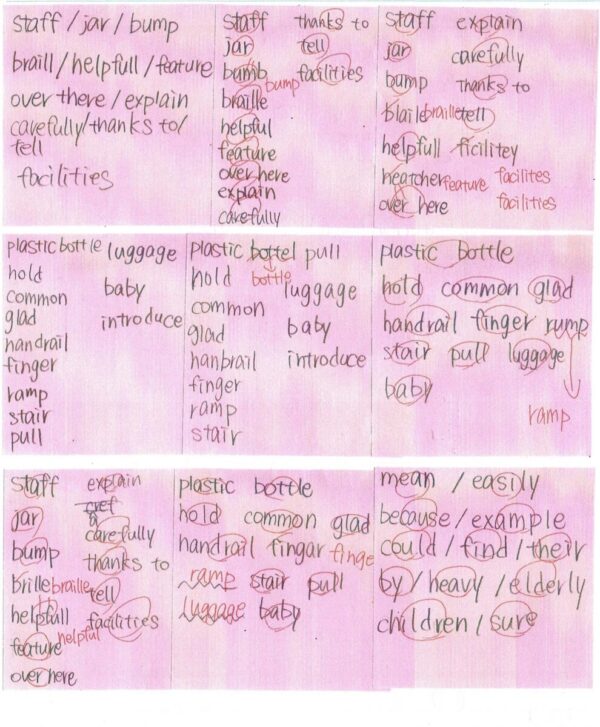 staff / jar / bump
braill / helpfull / feature
over there / explain
carefully / thanks to /
tell
facilities
staff thanks to
jar tell
bumb facilities
bump
braille
helpful
feature
over here
explain
carefully
staff explain
jar carefully
bump thanks to
blaile braille tell
helpfull ficilitey
heatcher feature facilites
over here facilities
plastic bottle luggage
hold
common baby
glad introduce
handrail
finger
ramp
stair
pull
plastic bottel pull
hold bottle luggage
common
glad baby
hanbrail introduce
finger
ramp
stair
plastic bottle
hold common glad
handrail finger rump
stair pull luggage
baby
ramp
staff explain
jar carefully
bump thanks to
brille braille tell
helpfull facilities
helpful
feature
over here
plastic bottle
hold common glad
handrail fingar finge
ramp stair pull
luggage baby
mean / easily
because / example
could / find / their
by / heavy / elderly
children / sure